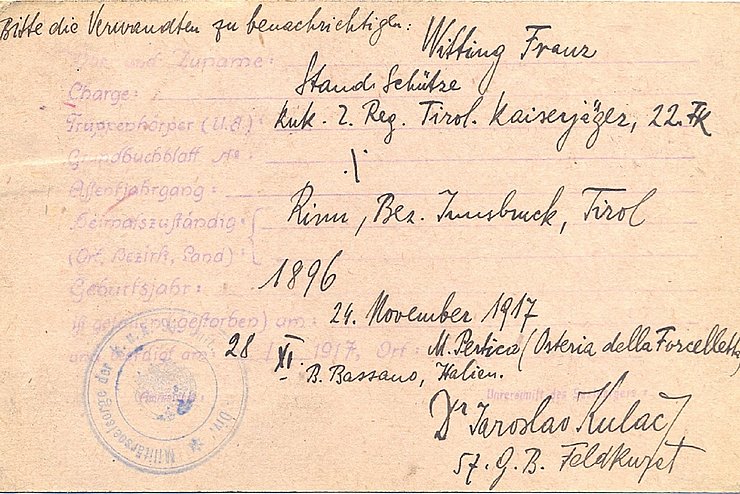 Bitte die Verwandten zu benachrichtigen:
Vor- und Zuname: Witting Franz
Charge: Stand. Schütze
Truppenkörper (U.A.) kuk. 2. Reg. Tirol. Kaiserjäger, 22. FK
Grundbuchblatt No:
Assentjahrgang: ./.
Heimatszuständig: Rinn, Bez. Innsbruck, Tirol
(Ort, Bezirk, Land)
Geburtsjahr: 1896
ist gestorben) am: 24. November 1917
am: 28 XI. 1917, Ort: M. Pertica (Osteria della Forcelletta)
B. Bassano, Italien.
Unterschrift des
Militärseelsorge der Div.
Dr Jaroslav Kulač
57. G. B. Feldkurat